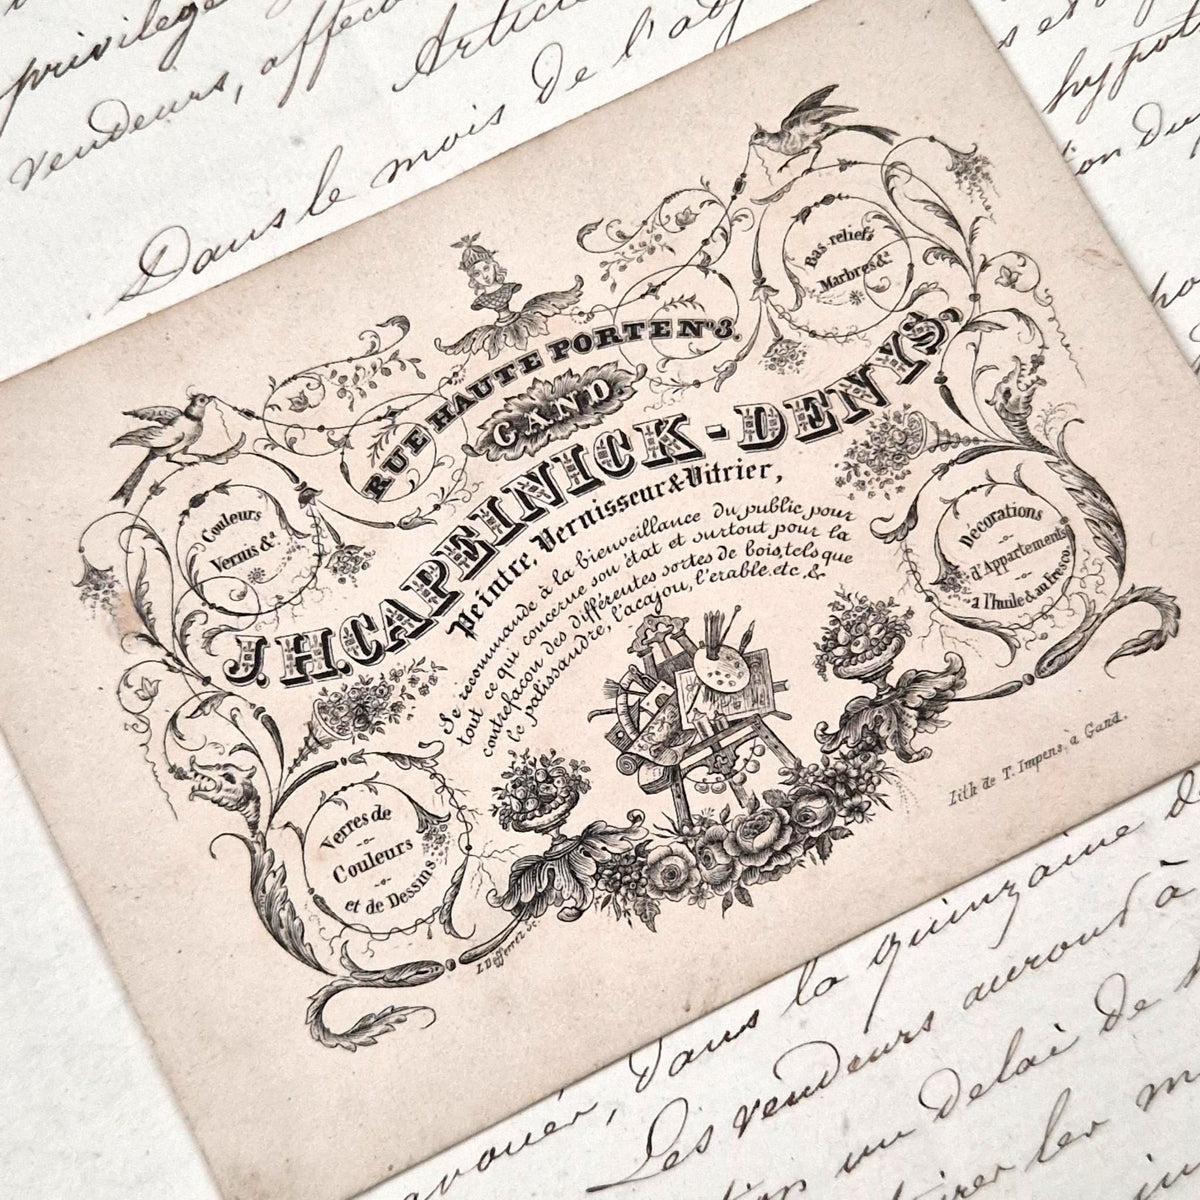 privilege
vendeurs, affec
Artic
Dans le mois de l'a
s et
hypot
RUE HAUTE PORTE Nº 3.
GAND.
J. H. CAPEINICK-DENYS,
Peintre, Vernisseur & Vitrier,
Se récommande à la bienveillance du public pour
tout ce qui concerne son état et surtout pour la
contrefacon des différentes sortes de bois, tels que
le palissandre, l'acajou, l'erable etc. &
Couleurs
Vernis &ª
Bas-reliefs
Marbres &ª
Verres de
Couleurs
et de Dessins
Décorations
d'Appartements
a l'huile & au Fresco.
Lith de T. Impens, à Gand.
dans la quinzaine d
Les vendeurs auront à
un delai de